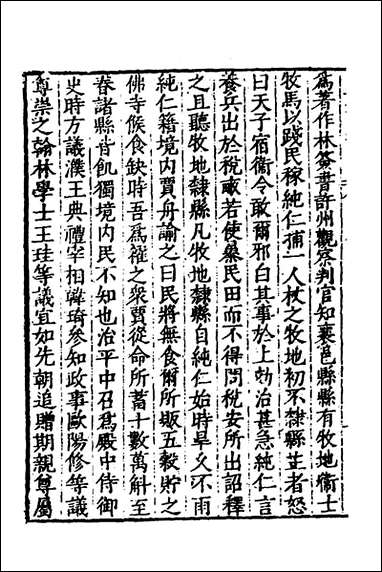 爲著作林簽書許州觀察判官知襄邑縣縣有牧地衞士
牧馬以踐民稼純仁捕一人杖之牧地初不隸縣主者怒
曰天子宿衞令敢爾邪白其事於上劾治甚急純仁言
養兵出於稅畝若使暴民田而不得問稅安所出詔釋
之且聽牧地隸縣凡牧地隸縣自純仁始時旱久不雨
純仁籍境内賈舟諭之曰民將無食爾所販五穀貯之
佛寺候食缺時吾爲糴之衆賈從命所蓄十數萬斛至
春諸縣皆飢獨境内民不知也治平中召爲殿中侍御
史時方議濮王典禮宰相韓琦參知政事歐陽修等議
尊崇之翰林學士王珪等議宜如先朝追贈期親尊屬